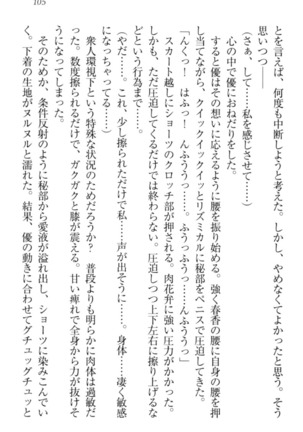 105
とを言えば、何度も中断しようと考えた。しかし、やめなくてよかったと思う。そう
思いつつ――
(さぁ、して……私を感じさせて……)
心の中で優におねだりをした。
すると優はその想いに応えるように腰を振り始める。強く春香の腰に自身の腰を押
し当てながら、クイックイックイッとリズミカルに秘部をペニスで圧迫してきた。
「んくっ! はふっ! んふうっ……ふうっふうっ……んふうう」
スカート越しにショーツのクロッチ部が押される。肉花弁に強い圧力がかかった。
しかも、ただ圧迫してくるだけでは終わらない。圧迫しつつ上下左右に擦り上げるな
どという行為まで……。
(やだ……。これ、少し擦られただけで私……声が出そうに……。身体……凄く敏感
になってる)
衆人環視下という特殊な状況のためだろうか? 普段よりも明らかに肉体は過敏だ
った。数度擦られるだけで、ガクガクと膝が震える。甘い痺れで全身から力が抜けそ
うになってしまった。
そのためか、条件反射のように秘部から愛液が溢れ出し、ショーツに染みこんでい
く。下着の生地がヌルヌルと濡れた。結果、優の動きに合わせてグチュッグチュッと